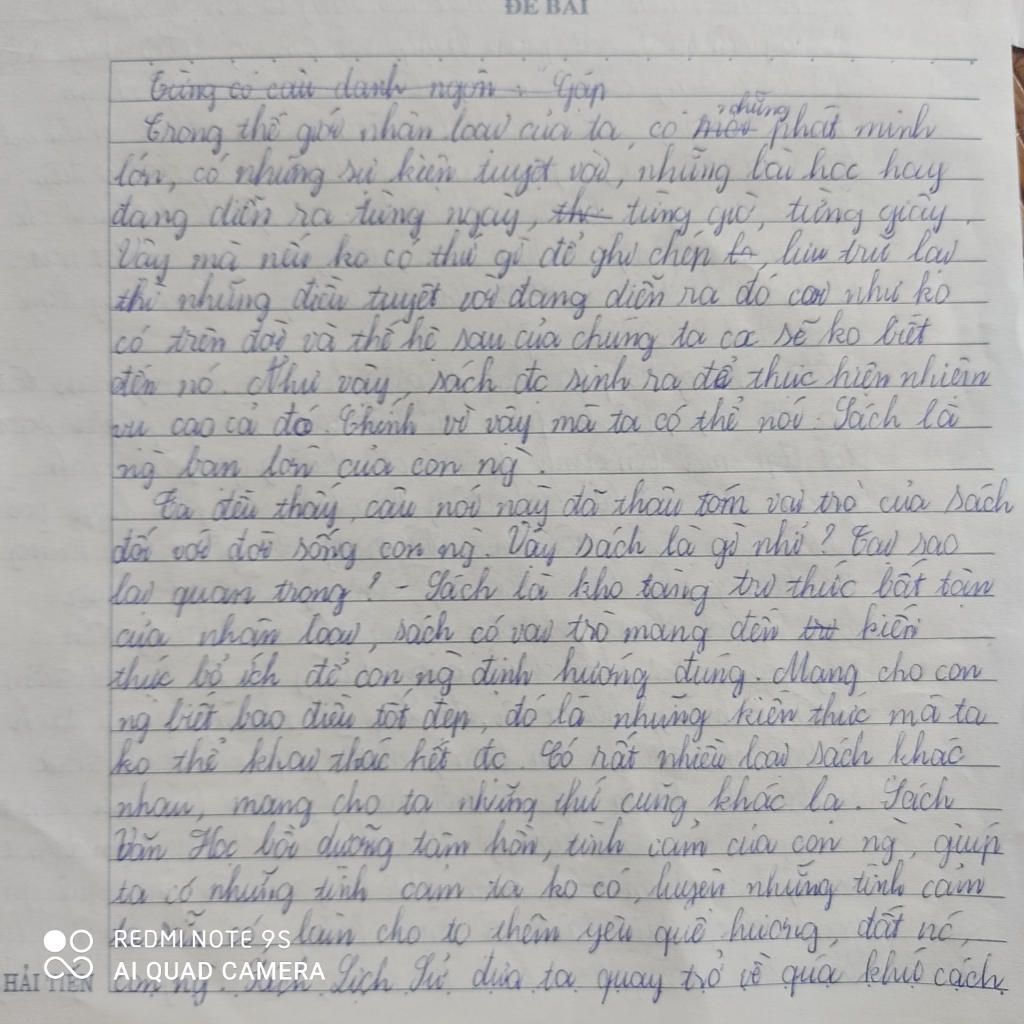 ĐỀ BÀI
Từng có câu danh ngôn: Gặp
Trong thế giới nhân loại của ta, có những phát minh
lớn, có những sự kiện tuyệt vời, những bài học hay
đang diễn ra từng ngày, từng giờ, từng giây.
Vậy mà nếu ko có thứ gì để ghi chép, lưu trữ lại
thì những điều tuyệt vời đang diễn ra đó coi như ko
có trên đời và thế hệ sau của chúng ta sẽ ko biết
đến nó. Như vậy, sách đc sinh ra để thực hiện nhiệm
vụ cao cả đó. Chính vì vậy mà ta có thể nói: Sách là
ng` bạn lớn của con ng`.
Ta đều thấy, câu nói này đã thâu tóm vai trò của sách
đối với đời sống con ng`. Vậy sách là gì nhỉ? Tại sao
lại quan trọng? - Sách là kho tàng tri thức bất tận
của nhân loại, sách có vai trò mang đến kiến
thức bổ ích để con ng` định hướng đúng. Mang cho con
ng` biết bao điều tốt đẹp, đó là những kiến thức mà ta
ko thể khai thác hết đc. Có rất nhiều loại sách khác
nhau, mang cho ta những thứ cũng khác lạ. Sách
Văn Học bồi dưỡng tâm hồn, tình cảm của con ng`, giúp
ta có những tình cảm ta ko có, luyện những tình cảm
ta sẵn có, làm cho ta thêm yêu quê hương, đất nc',
con ng`. Sách Lịch Sử đưa ta quay trở về quá khứ cách
HẢI TIẾN
REDMI NOTE 9S
AI QUAD CAMERA